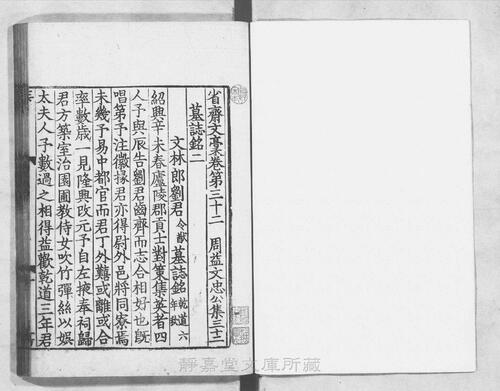 省齋文藁卷第三十二 周益文忠公集三十二
墓誌銘二
文林郎劉君令猷墓誌銘乾道六年
紹興辛未春廬陵郡貢士對策集英者四
人予與辰告劉君齒齊而志合相好也旣
唱第予注徽掾君亦得尉外邑將同寮焉
未幾予易中都官而君丁外難或離或合
率數歲一見隆興改元予自左掖奉祠歸
君方築室治園圃教侍女吹竹彈絲以娛
太夫人予數過之相得益歡乾道三年君
靜嘉堂文庫所藏